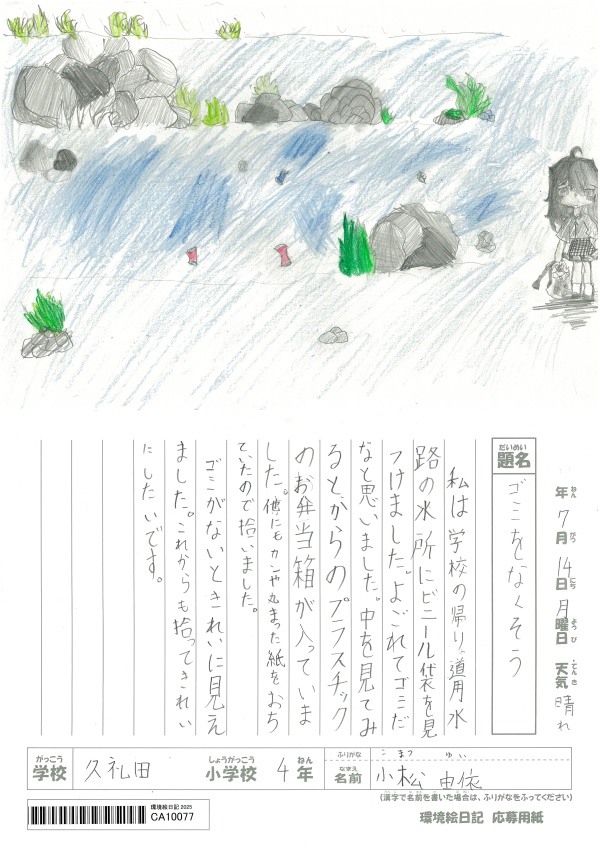 年 7月 14日 月曜日 天気 晴れ
ねん がつ にち ようび てんき
だいめい
題名 ゴミをなくそう
私は学校の帰り道用水
路の水所にビニール袋を見
つけました。よごれてゴミだ
なと思いました。中を見てみ
るとからのプラスチック
のお弁当箱が入っていま
した。他にもカンや丸まった紙をおち
ていたので拾いました。
ゴミがないときれいに見え
ました。これからも拾ってきれい
にしたいです。
がっこう しょうがっこう ねん ふりがな こまつ ゆい
学校 久礼田 小学校 4年 なまえ 名前 小松 由依
(漢字で名前を書いた場合は、ふりがなをふってください)
環境絵日記 2025
CA10077
環境絵日記 応募用紙